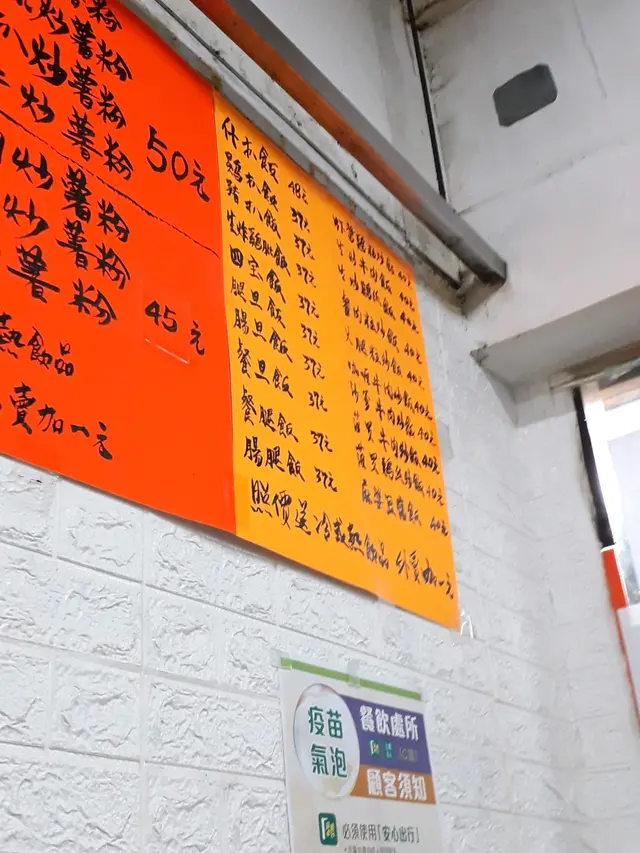 炒薯粉
炒薯粉
炒薯粉
50元
炒薯粉
炒薯粉
薯粉
45元
熱飲品
賣加一元
什扒飯 48元
鷄扒飯 37元
豬扒飯 37元
生炸鷄肶飯 37元
四宝飯 37元
腿旦飯 37元
腸旦飯 37元
餐旦飯 37元
餐腿飯 37元
腸腿飯 37元
40元
生炒牛肉飯 40元
40元
40元
火腿粒炒飯 40元
咖喱牛肉炒飯 40元
沙爹牛肉炒飯 40元
菠蘿牛肉炒飯 40元
菠蘿鷄炒飯 40元
麻婆豆腐飯 40元
照價送冷或熱飲品 外賣加一元
疫苗
氣泡
餐飲處所
顧客須知
必須使用「安心出行」